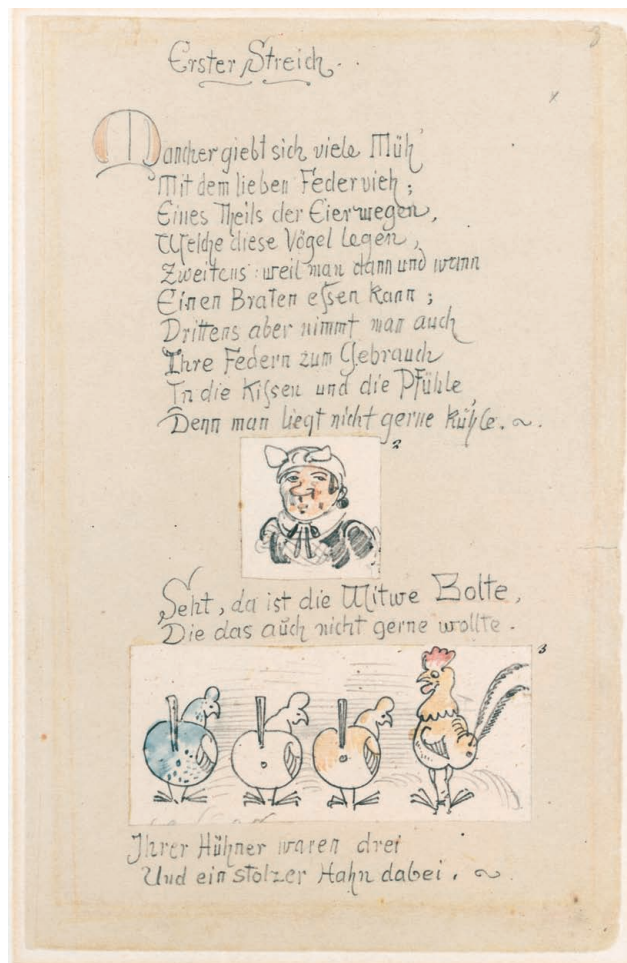 3
Erster Streich.
Mancher giebt sich viele Müh'
Mit dem lieben Federvieh;
Eines Theils der Eier wegen,
Welche diese Vögel legen,
Zweitens: weil man dann und wann
Einen Braten eſsen kann;
Drittens aber nimmt man auch
Ihre Federn zum Gebrauch
In die Kiſsen und die Pfühle
Denn man liegt nicht gerne kühle.
2
Seht, da ist die Witwe Bolte,
Die das auch nicht gerne wollte.
3
Ihrer Hühner waren drei
Und ein stolzer Hahn dabei.